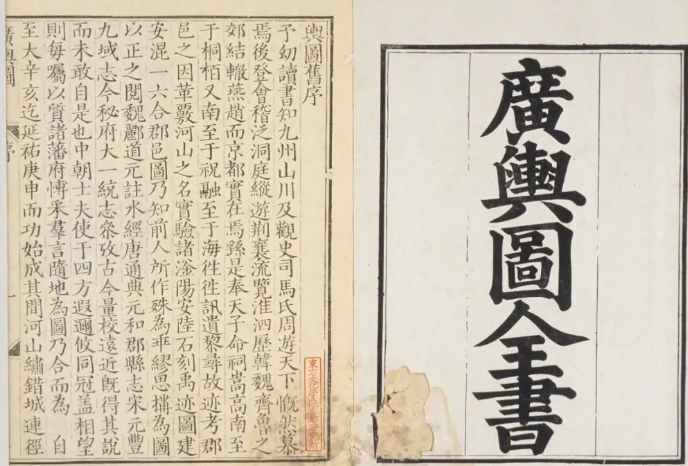 廣輿圖全書
輿圖舊序
予幼讀書知九州山川及觀史司馬氏周遊天下慨然慕
焉後登會稽泛洞庭縱遊荆襄流覽淮泗歷韓魏齊魯之
郊結轍燕趙而京都實在焉繇是奉天子命祠嵩高南至
于桐栢又南至于祝融至于海徃徃訊遺黎尋故迹考郡
邑之因革覈河山之名實驗諸滏陽安陸石刻禹迹圖建
安混一六合郡邑圖乃知前人所作殊為乖繆思搆為圖
以正之閱魏酈道元註水經唐通典元和郡縣志宋元豐
九域志今秘府大一統志叅攷古今量校遠近既得其說
而未敢自是也中朝士夫使于四方遐邇攸同冠盖相望
則每囑以質諸藩府慱采羣言隨地為圖乃合而為 自
至大辛亥迄延祐庚申而功始成其間河山繡錯城連徑
廣輿圖 序 一